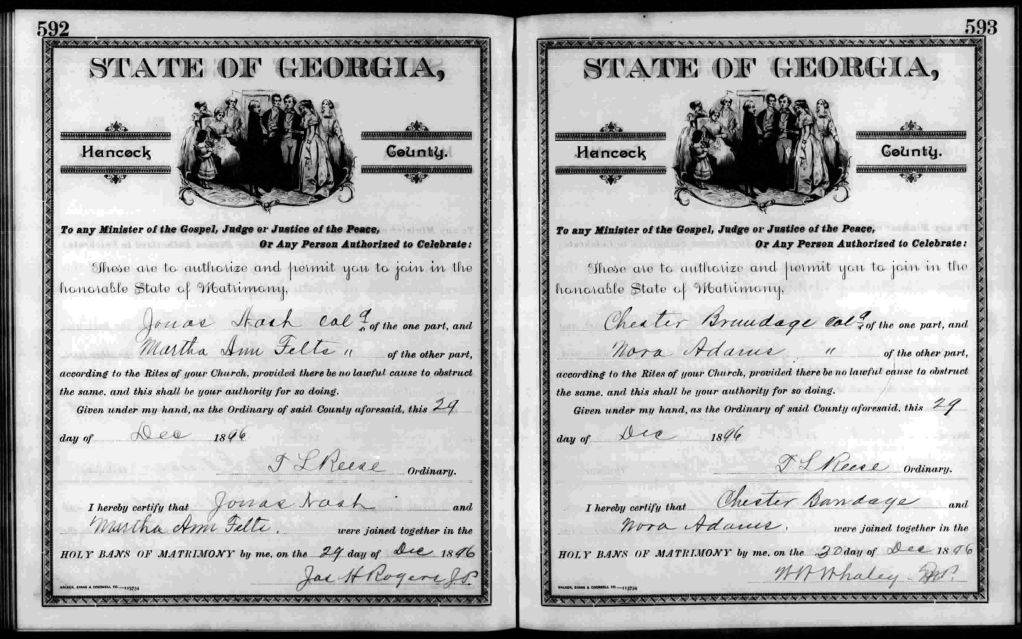 592
STATE OF GEORGIA,
Hancock County.
To any Minister of the Gospel, Judge or Justice of the Peace,
Or Any Person Authorized to Celebrate:
These are to authorize and permit you to join in the
honorable State of Matrimony,
Jonas Nash Cold of the one part, and
Martha Ann Felts " of the other part,
according to the Rites of your Church, provided there be no lawful cause to obstruct
the same, and this shall be your authority for so doing.
Given under my hand, as the Ordinary of said County aforesaid, this 29
day of Dec 1896
T L Reese Ordinary.
I hereby certify that Jonas Nash and
Martha Ann Felts. were joined together in the
HOLY BANS OF MATRIMONY by me, on the 29 day of Dec 1896
Jas H Rogers J.P.
WALKER, EVANS & COGSWELL CO.
593
STATE OF GEORGIA,
Hancock County.
To any Minister of the Gospel, Judge or Justice of the Peace,
Or Any Person Authorized to Celebrate:
These are to authorize and permit you to join in the
honorable State of Matrimony,
Chester Brundage Cold of the one part, and
Nora Adams " of the other part,
according to the Rites of your Church, provided there be no lawful cause to obstruct
the same, and this shall be your authority for so doing.
Given under my hand, as the Ordinary of said County aforesaid, this 29
day of Dec 1896
T L Reese Ordinary.
I hereby certify that Chester Bandage and
Nora Adams. were joined together in the
HOLY BANS OF MATRIMONY by me, on the 30 day of Dec 1896
W W Whaley
WALKER, EVANS & COGSWELL CO.